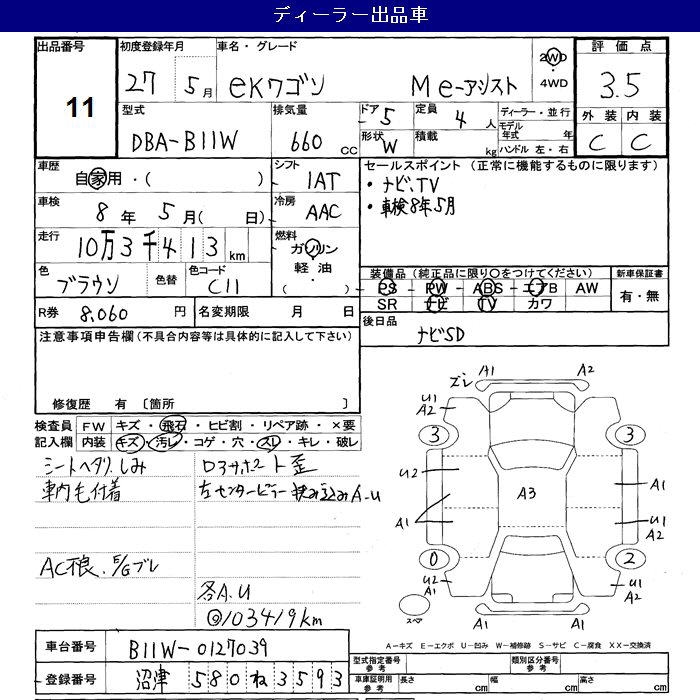 ディーラー出品車
出品番号 11
初度登録年月 27 5月
車名・グレード eKワゴン Me-アシスト
2WD 4WD
評価点 3.5
外装 C 内装 C
型式 DBA-B11W
排気量 660 cc
ドア 5 定員 4 人
形状 W 積載 kg
ディーラー・並行
モデル年式 年
ハンドル 左・右
車歴 自家用・( )
シフト 1AT
車検 8年 5月( 日)
冷房 AAC
走行 10万3千413 km
燃料 ガソリン・軽油・( )
色 ブラウン 色替 色コード C11
R券 8,060 円 名変期限 月 日
セールスポイント (正常に機能するものに限ります)
・ナビ、TV
・車検8年5月
装備品(純正品に限り○をつけてください)
PS PW ABS エアB AW
SR ナビ TV カワ
新車保証書 有・無
後日品 ナビSD
注意事項申告欄(不具合内容等は具体的に記入して下さい)
修復歴 有 〔箇所 〕
検査員記入欄
FW キズ・飛石・ヒビ割・リペア跡・×要
内装 キズ・汚レ・コゲ・穴・スレ・キレ・破レ
シートヘタリ、しみ
車内毛付着
AC不良、E/Gブレ
ロアサポート歪
左センターピラー挟み込みA-U
各A.U
◎103419km
ズレ A1 A2
U1 A2
3 3
U2 A1
A3
A1 U1 A2
0 2
U2 A1 U1 A2
スペア A1 A1
A-キズ E-エクボ U-凹み W-補修跡 S-サビ C-腐食 XX-交換済
車台番号 B11W-0127039
登録番号 沼津 580 ね 3593
型式指定番号 参考 類別区分番号 参考
車庫証明用 参考 長さ cm 幅 cm 高さ cm